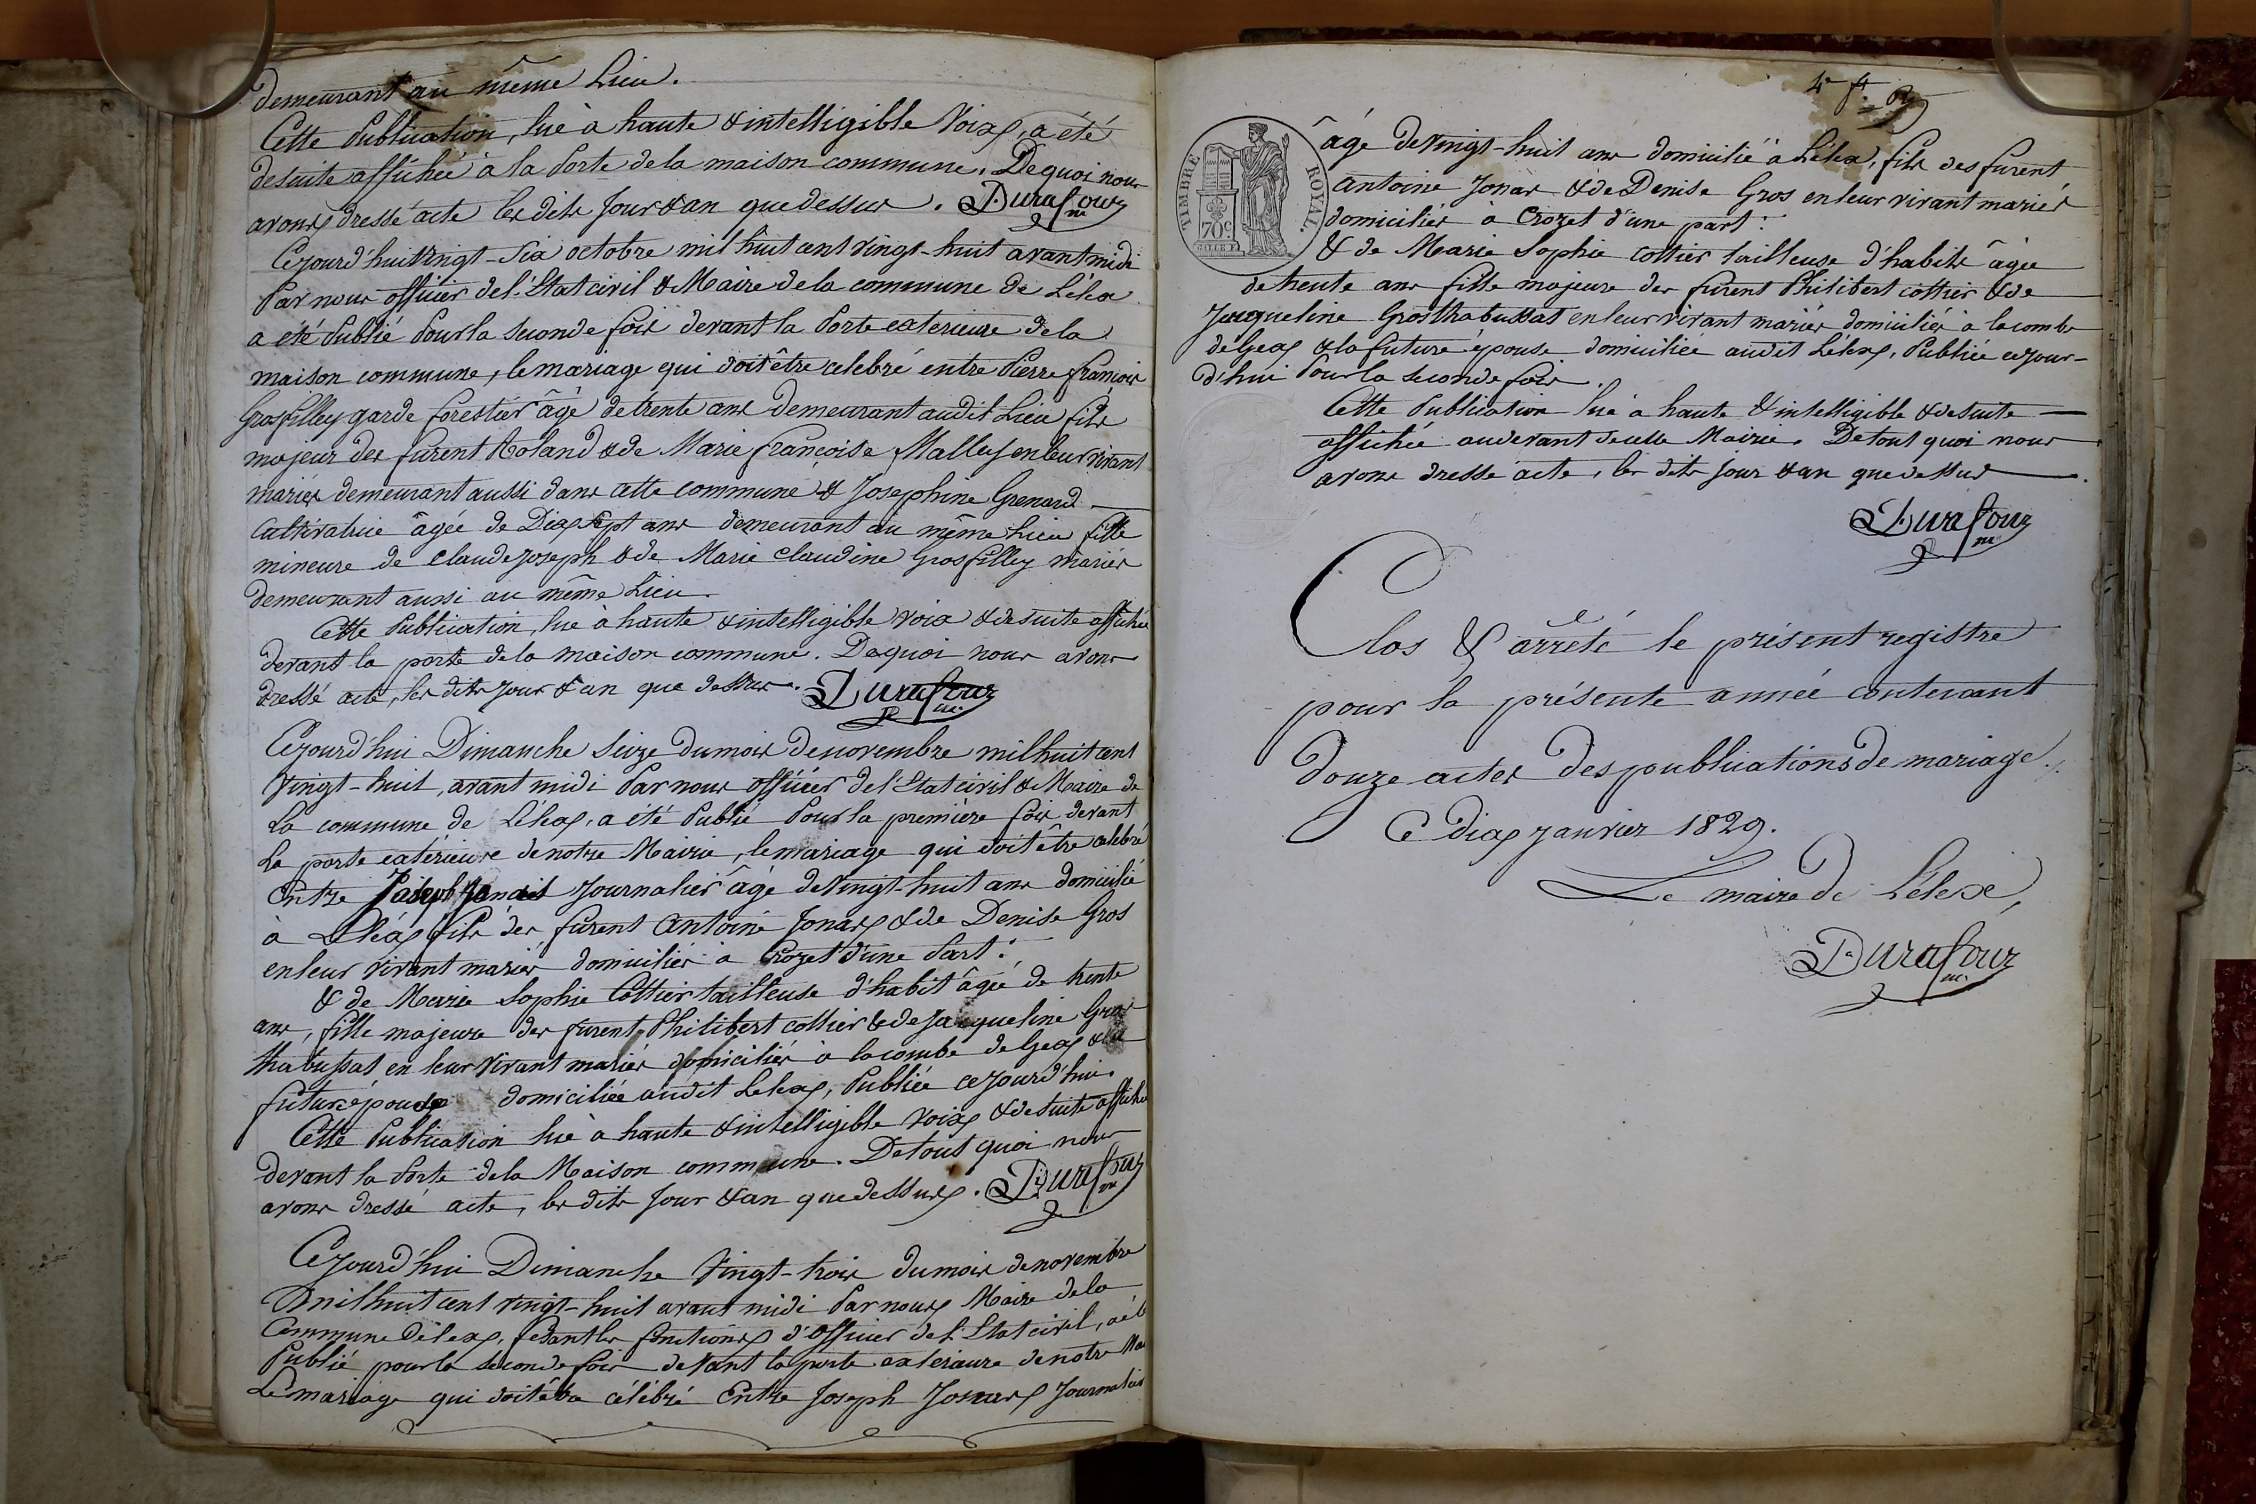 demeurant au même Lieu.
Cette Publication, lue à haute & intelligible Voix, a été
desuite affichée à la Porte de la maison commune. Dequoi nous
avons dressé acte les dits Jour & an que dessus. Durafour
me
Cejourd'hui vingt-six octobre mil huit cent vingt-huit avant midi
Par nous officier de l'Etat civil & Maire de la commune de Lélex
a été Publié Pour la seconde fois devant la Porte exterieure de la
maison commune, le mariage qui doit être celebré entre Pierre françois
Grosfilley garde forestier âgé de trente ans Demeurant audit Lieu fils
majeur des furent Roland & de Marie françoise Malley en leur vivant
mariés demeurant aussi dans cette commune & Josephine Grenard
Cultivatrice âgée de Dix sept ans demeurant au même Lieu fille
mineure de Claude Joseph & de Marie Claudine Grosfilley mariés
demeurant aussi au même Lieu.
Cette Publication, lue à haute & intelligible voix & desuite affichée
devant la porte de la maison commune. Dequoi nous avons
dressé acte, les dits Jour & an que dessus. Durafour
me.
Cejourd'hui Dimanche Seize du mois de novembre mil huit cent
Vingt-huit, avant midi Par nous officier de l'Etat civil & Maire de
la commune de Lélex, a été Publié Pour la première fois devant
la porte extérieure de notre Mairie, le mariage qui doit être celebré
Entre Joseph Journalier âgé de Vingt-huit ans domicilié
à Léléx fils des furent Antoine Jonax & de Denise Gros
en leur vivant mariés domiciliés à Crozet d'une Part:
& de Marie Sophie Cottier tailleuse d'habit âgée de trente
ans, fille majeure des furent Philibert cottier & de Jacqueline Gros
thabussat en leur Vivant mariés domiciliés à la combe de Gex & la
future épouse domiciliée audit Lélex, Publiée cejourd'hui.
Cette Publication lue à haute & intelligible voix & desuite affichée
devant la Porte de la Maison commune. De tout quoi nous
avons dressé acte, les dits Jour & an que dessus. Durafour
me
Cejourd'hui Dimanche Vingt-trois du mois de novembre
mil huit cent vingt-huit avant midi Par nous Maire de la
Commune Délex, fesant les fonctions d'officier de l'Etat civil, a été
Publié pour la seconde fois devant la porte exterieure de notre Ma
Le mariage qui doit célébré Entre Joseph Jonax Journalier
4e ft.
TIMBRE ROYAL.
70c
âgé de Vingt-huit ans domicilié à Lélex, fils des furent
Antoine Jonas & de Denise Gros en leur vivant mariés
domiciliés à Crozet d'une part:
& de Marie Sophie Cottier tailleuse d'habits âgée
de trente ans fille majeure des furent Philibert cottier & de
Jacqueline Grosthabussat en leur vivant mariés domiciliés à la combe
de Gex & la future épouse domiciliée audit Lélex, Publiée cejour-
d'hui Pour la seconde fois.
Cette Publication lue à haute & intelligible & desuite
affichée audevant de cette Mairie. De tout quoi nous
avons dressé acte, les dits jour & an que dessus.
Durafour
me
Clos & arrêté le présent registre
pour la présente année contenant
Douze actes des publications de mariage.
Ce dix Janvier 1829.
Le maire de Lélex,
Durafour
me.